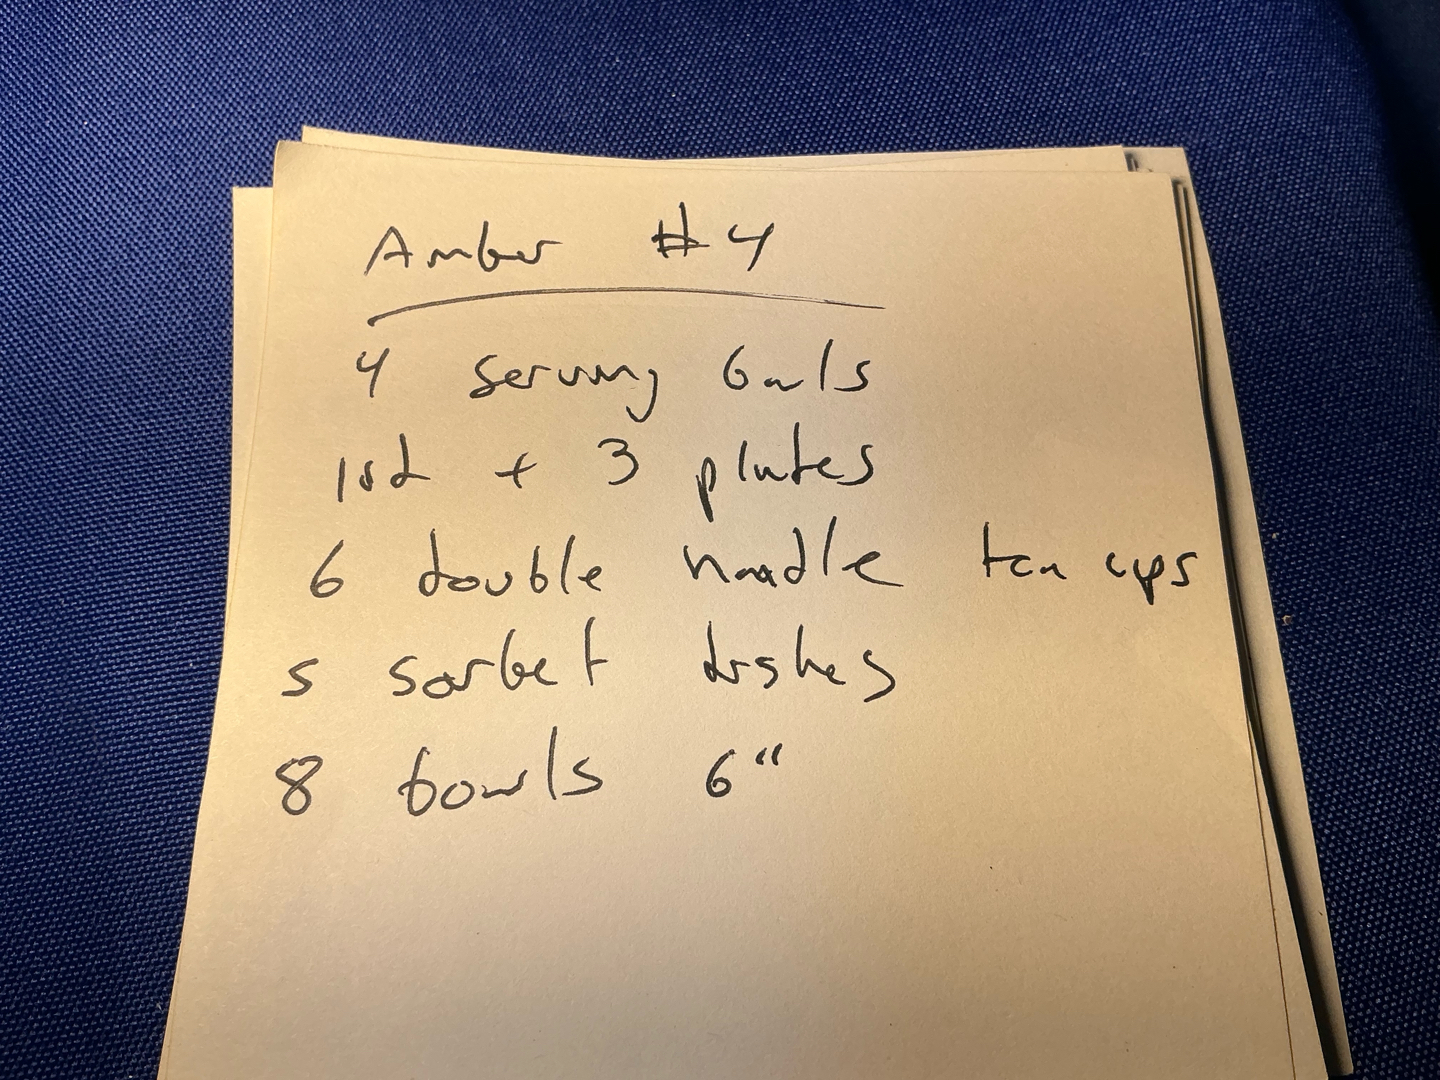 Amber #4
4 serving bowls
+ 3 plates
6 double handle tea cups
5 sorbet dishes
8 bowls 6"